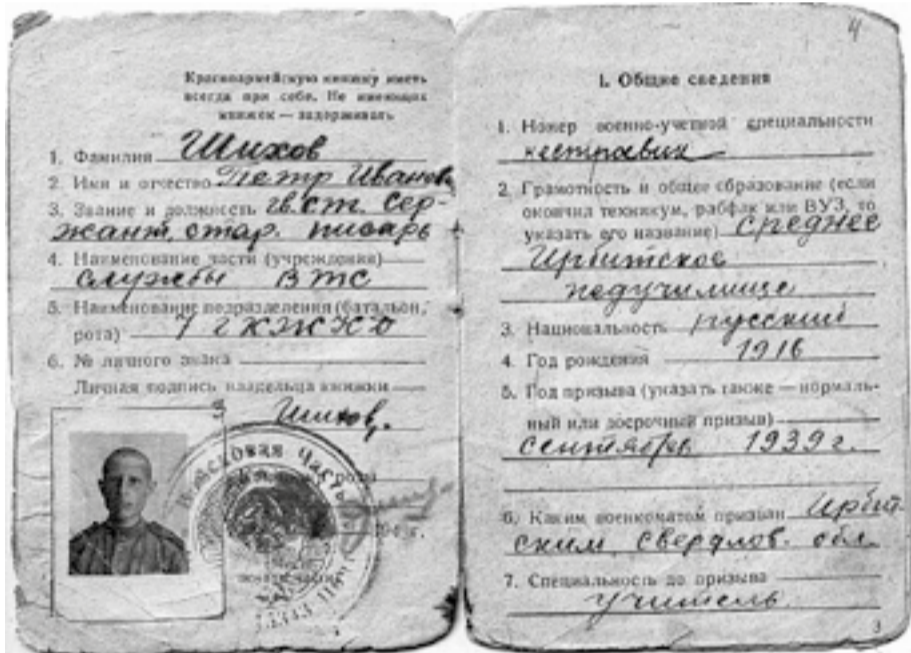 Красноармейскую книжку иметь
всегда при себе. Не имеющих
книжек — задерживать
1. Фамилия Шихов
2. Имя и отчество Петр Иванов
3. Звание и должность гв. ст. Сер-
жант, стар. писарь
4. Наименование части (учреждения)
службы ВТС
5. Наименование подразделения (батальон,
рота)
6. № личного знака
Личная подпись владельца книжки
Шихов
Войсковая часть
4
I. Общие сведения
1. Номер военно-учетной специальности
нестроевик
2. Грамотность и общее образование (если
окончил техникум, рабфак или ВУЗ, то
указать его название) Среднее
Ирбитское
педучилище
3. Национальность русский
4. Год рождения 1916
5. Год призыва (указать также — нормаль-
ный или досрочный призыв)
сентябрь 1939 г.
6. Каким военкоматом призван Ирбит-
ским, Свердлов. обл.
7. Специальность до призыва
учитель
3